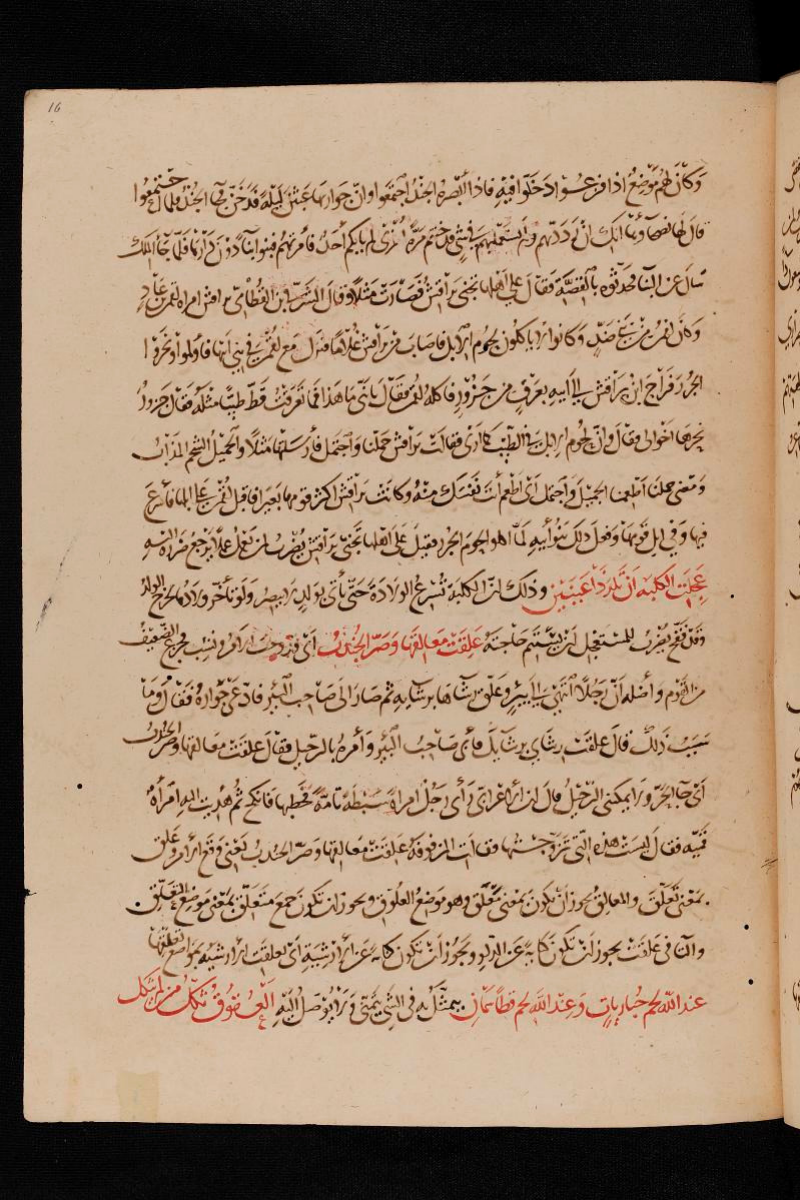 16
وكان لهم موضع اذا فزعوا دخلوا فيه فاذا أبصره الجند اجتمعوا وان جواريها عبثن ليلة فدخن فجا الجند فلما اجتمعوا
قال لها نصحاؤها انك ان رددتهم ولم تستعمليهم في شيء فدخنتم مرة اخرى لم يأتكم أحد فأمرتهم فبنوا بنآ دون دارها فلما جا الملك
سال عن البنا فحدثوه بالقصة فقال على اهلها تجنى براقش فصارت مثلا وقال الشرقى بن القطامى براقش امراة لقمن بن عاد
وكان لقمن من بنى ضد وكانوا لا ياكلون لحوم الابل فاصاب من براقش غلاما فنزل مع لقمن في بنى ابيها فاولموا ونحروا
الجزر فراح ابن براقش الى ابيه بعرق من جزور فاكله لقمن فقال يا بنى ما هذا فما تعرقت قط طيبا مثله فقال جزور
نحرها اخوالى فقال وان لحوم الابل في الطيب كما ارى فقالت براقش جملنا واجتمل فأرسلتها مثلا والجميل الشحم المذاب
ومعنى جملنا اى اطعمنا الجميل واجتمل اى اطعم أنت نفسك منه وكانت براقش اكثر قومها بعيرا فاقبل لقمن على ابلها فأسرع
فيها وفى ابل قومها وفعل ذلك بنو أبيه لما اكلوا لحوم الجزر فقيل على اهلها تجنى براقش يضرب لمن يعمل عملا يرجع ضرره اليه
عجلت الكلبة أن تلد ذا عينين وذلك ان الكلبة تسرع الولادة حتى تأتى بولد لا يبصر ولو تأخر ولادها لخرج الولد
وقد فقح يضرب للمستعجل ان يستتم حاجته علقت معالقها وصر الجندب اى قد وجب الامر ونشب فجزع الضعيف
من القوم وأصله أن رجلا انتهى الى بير وعلق رشاها برشايه ثم صار الى صاحب البير فادعى جواره فقال وما
سبب ذلك قال علقت رشاى برشايك فأبى صاحب البير وأمره بالرحيل فقال علقت معالقها وصر الجندب
اى جا الحر ولا يمكنى الرحيل قال ابن الاعرابى رأى رجل امراة سبطة تامة فخطبها فانكح ثم هديت اليه امرأة
قميه فقال ليست هذه التى تزوجتها فقالت المزفوفة علقت معالقها وصر الجندب يعنى وقع الامر علق
بمعنى تعلق والمعالق يجوز أن يكون بمعنى متعلق وهو موضع العلوق ويجوز ان يكون جمع متعلق بمعنى موضع التعلق
والتا فى علقت يجوز ان يكون كناية عن الدلو ويجوز أن تكون كناية عن الارشية اى تعلقت الارشيه بمواضع تعلقها
عند الله لحم حباريات وعند الله لحم قطا سمان يتمثل به فى الشى يتمنى ولا يوصل اليه العقوق ثكل من لم يثكل